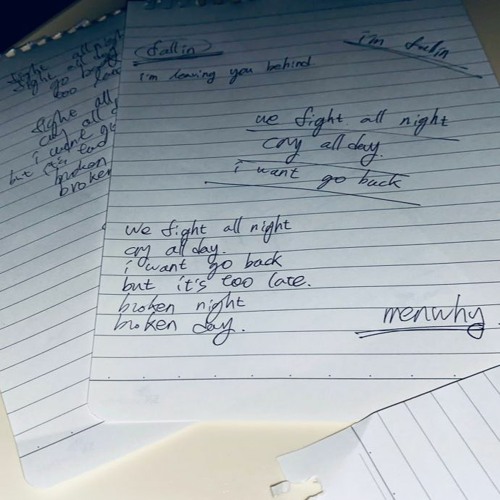 fallin
i'm leaving you behind
i'm fallin
we fight all night
cry all day.
i want go back
we fight all night
cry all day.
i want go back
but it's too late.
broken night
broken day.
menwhy
fight all night
fight all
cry all
i want go
but it's too
broken
broken